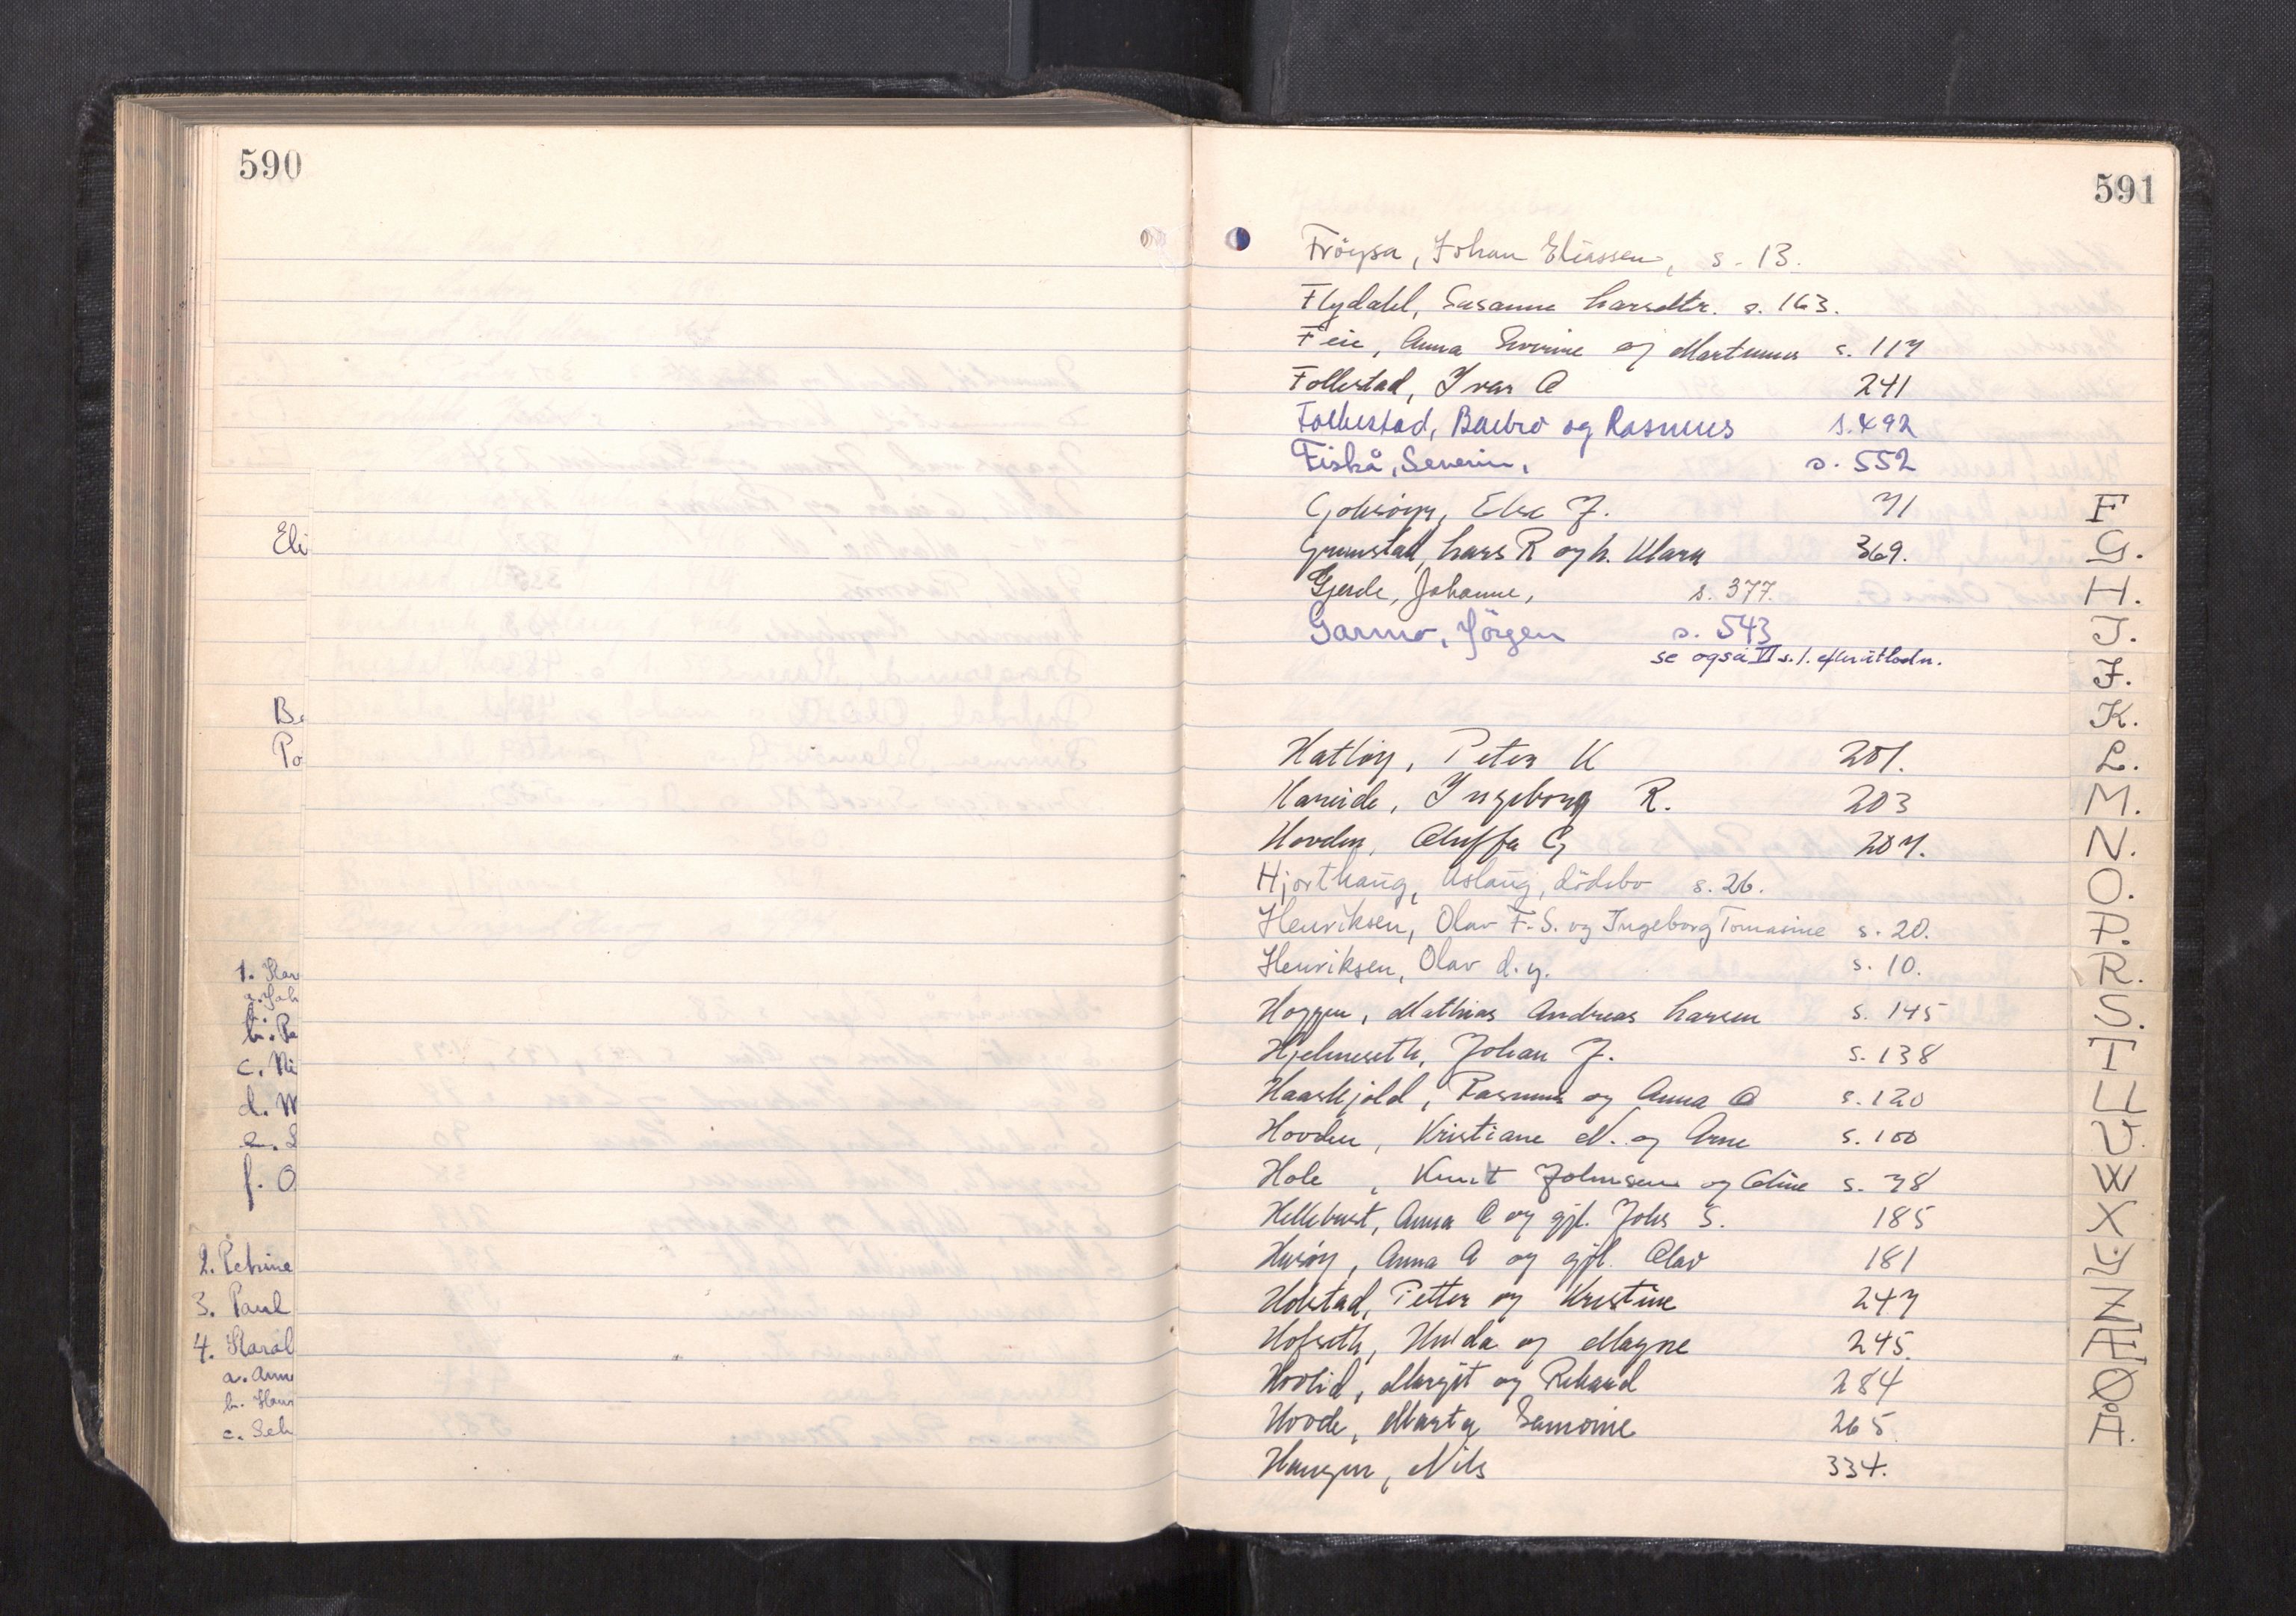 590
Eli
B.
Po
1. Kar
a. Joh
b. Pe
c. Ni
d. M
e. L
f. O
2. Petrine
3. Paul
4. Karol
a. Anne
b. Hans
c. Seb
591
Fröysa, Johan Eliassen, s. 13.
Flydahl, Susanne Larsdtr. s. 163.
Feie, Anna Severine og Martinus s. 117
Follestad, Ivar O 241
Follestad, Barbro og Rasmus s. 492
Fiskå, Severin, s. 552
Gjelsöyr, Else J. 71
Grimstad, Lars R og h. Klara 369.
Gjerde, Johanne, s. 377.
Garmo, Jörgen s. 543
se også VI s. 1. efter utlodn.
Hatløy, Peter K 201.
Hareide, Ingeborg R. 203
Hovden, Oluffa G 207.
Hjorthaug, Aslaug, dödsbo s. 26.
Henriksen, Olav F.S. og Ingeborg Tomasine s. 20.
Henriksen, Olav d.y. s. 10.
Haggen, Mathias Andreas Larsen s. 145
Hjelmeseth, Johan J. s. 138
Haaskjold, Rasmus og Anna O s. 120
Hovden, Kristiane N. og Arne s. 100
Hole, Knut Johnsen og Oline s. 78
Hellebust, Anna O og gjl. Johs S. 185
Husøy, Anna A og gjl. Olav 181
Holstad, Petter og Kristine 247
Hofseth, Hulda og Magne 245.
Hovlid, Margit og Rikard 284
Hovde, Marta Samoine 265.
Haugen, Nils 334.
F
G.
H.
I.
J.
K.
L.
M.
N.
O.
P.
R.
S.
T
U
V.
W
X
Y.
Z
Æ
Ø
Å.